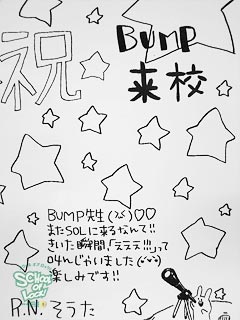 祝
BUMP
来校
BUMP先生(>Д<)♡♡
またSOLに来るなんて!!
きいた瞬間、「えええ!!!」って
叫んじゃいました(>▽<)
楽しみです!!
SCHOOL OF LOCK!
R.N. そうた